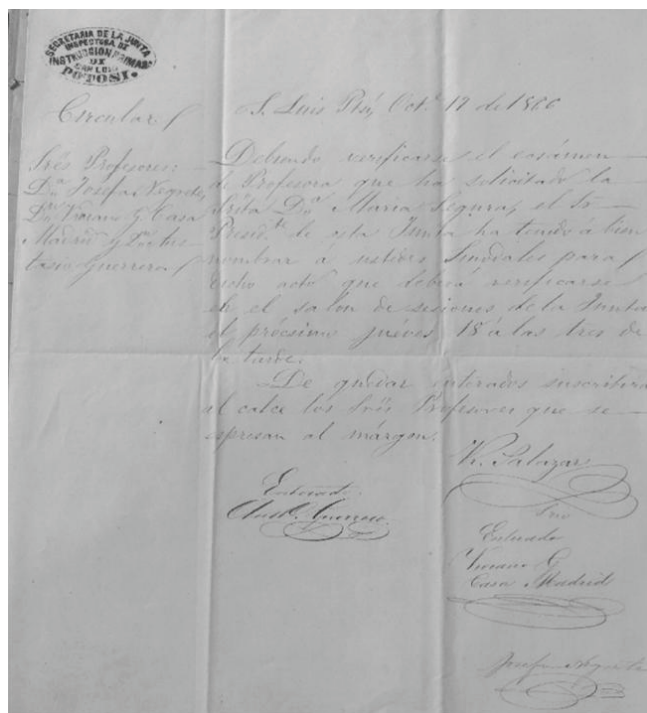 SECRETARIA DE LA JUNTA
INSPECTORA DE
INSTRUCCION PRIMARIA
DE
SAN LUIS
POTOSI.
Circular
S. Luis Psí, Oct.e 17 de 1866
Sres Profesores:
Da Josefa Negrete,
Dn Viviano G. Casa
Madrid y Dn
Guerrero
Debiendo verificarse el ecsámen
de Profesora que ha solicitado la
Srita Da Maria Segura, el Sr
Presidte de esta Junta ha tenido á bien
nombrar á ustedes Sinodales para
dicho acto que deberá verificarse
en el salon de sesiones de la Junta
el prócsimo juéves 18 á las tres de
la tarde.
De quedar enterados suscribirán
al calce los Sres Profesores que se
espresan al márgen.
Salazar
Srio
Enterado
Guerrero
Enterado
Viviano G.
Casa Madrid
Josefa Negrete